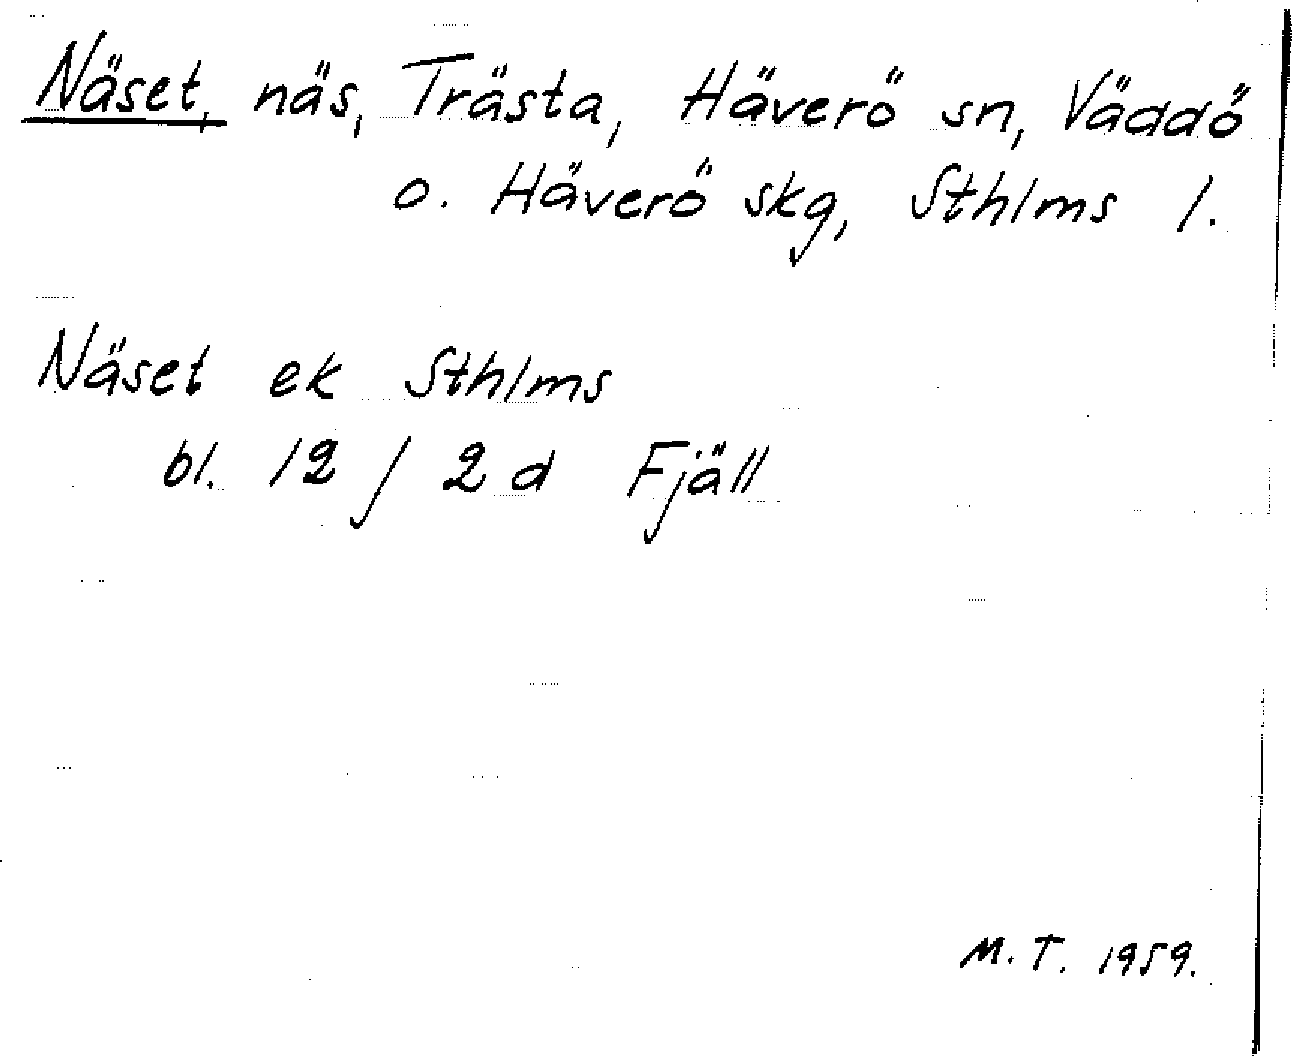 Näset, näs, Trästa, Häverö sn, Väddö
o. Häverö skg, Sthlms l.
Näset ek Sthlms
bl. 12 / 2 d Fjäll
M. T. 1959.